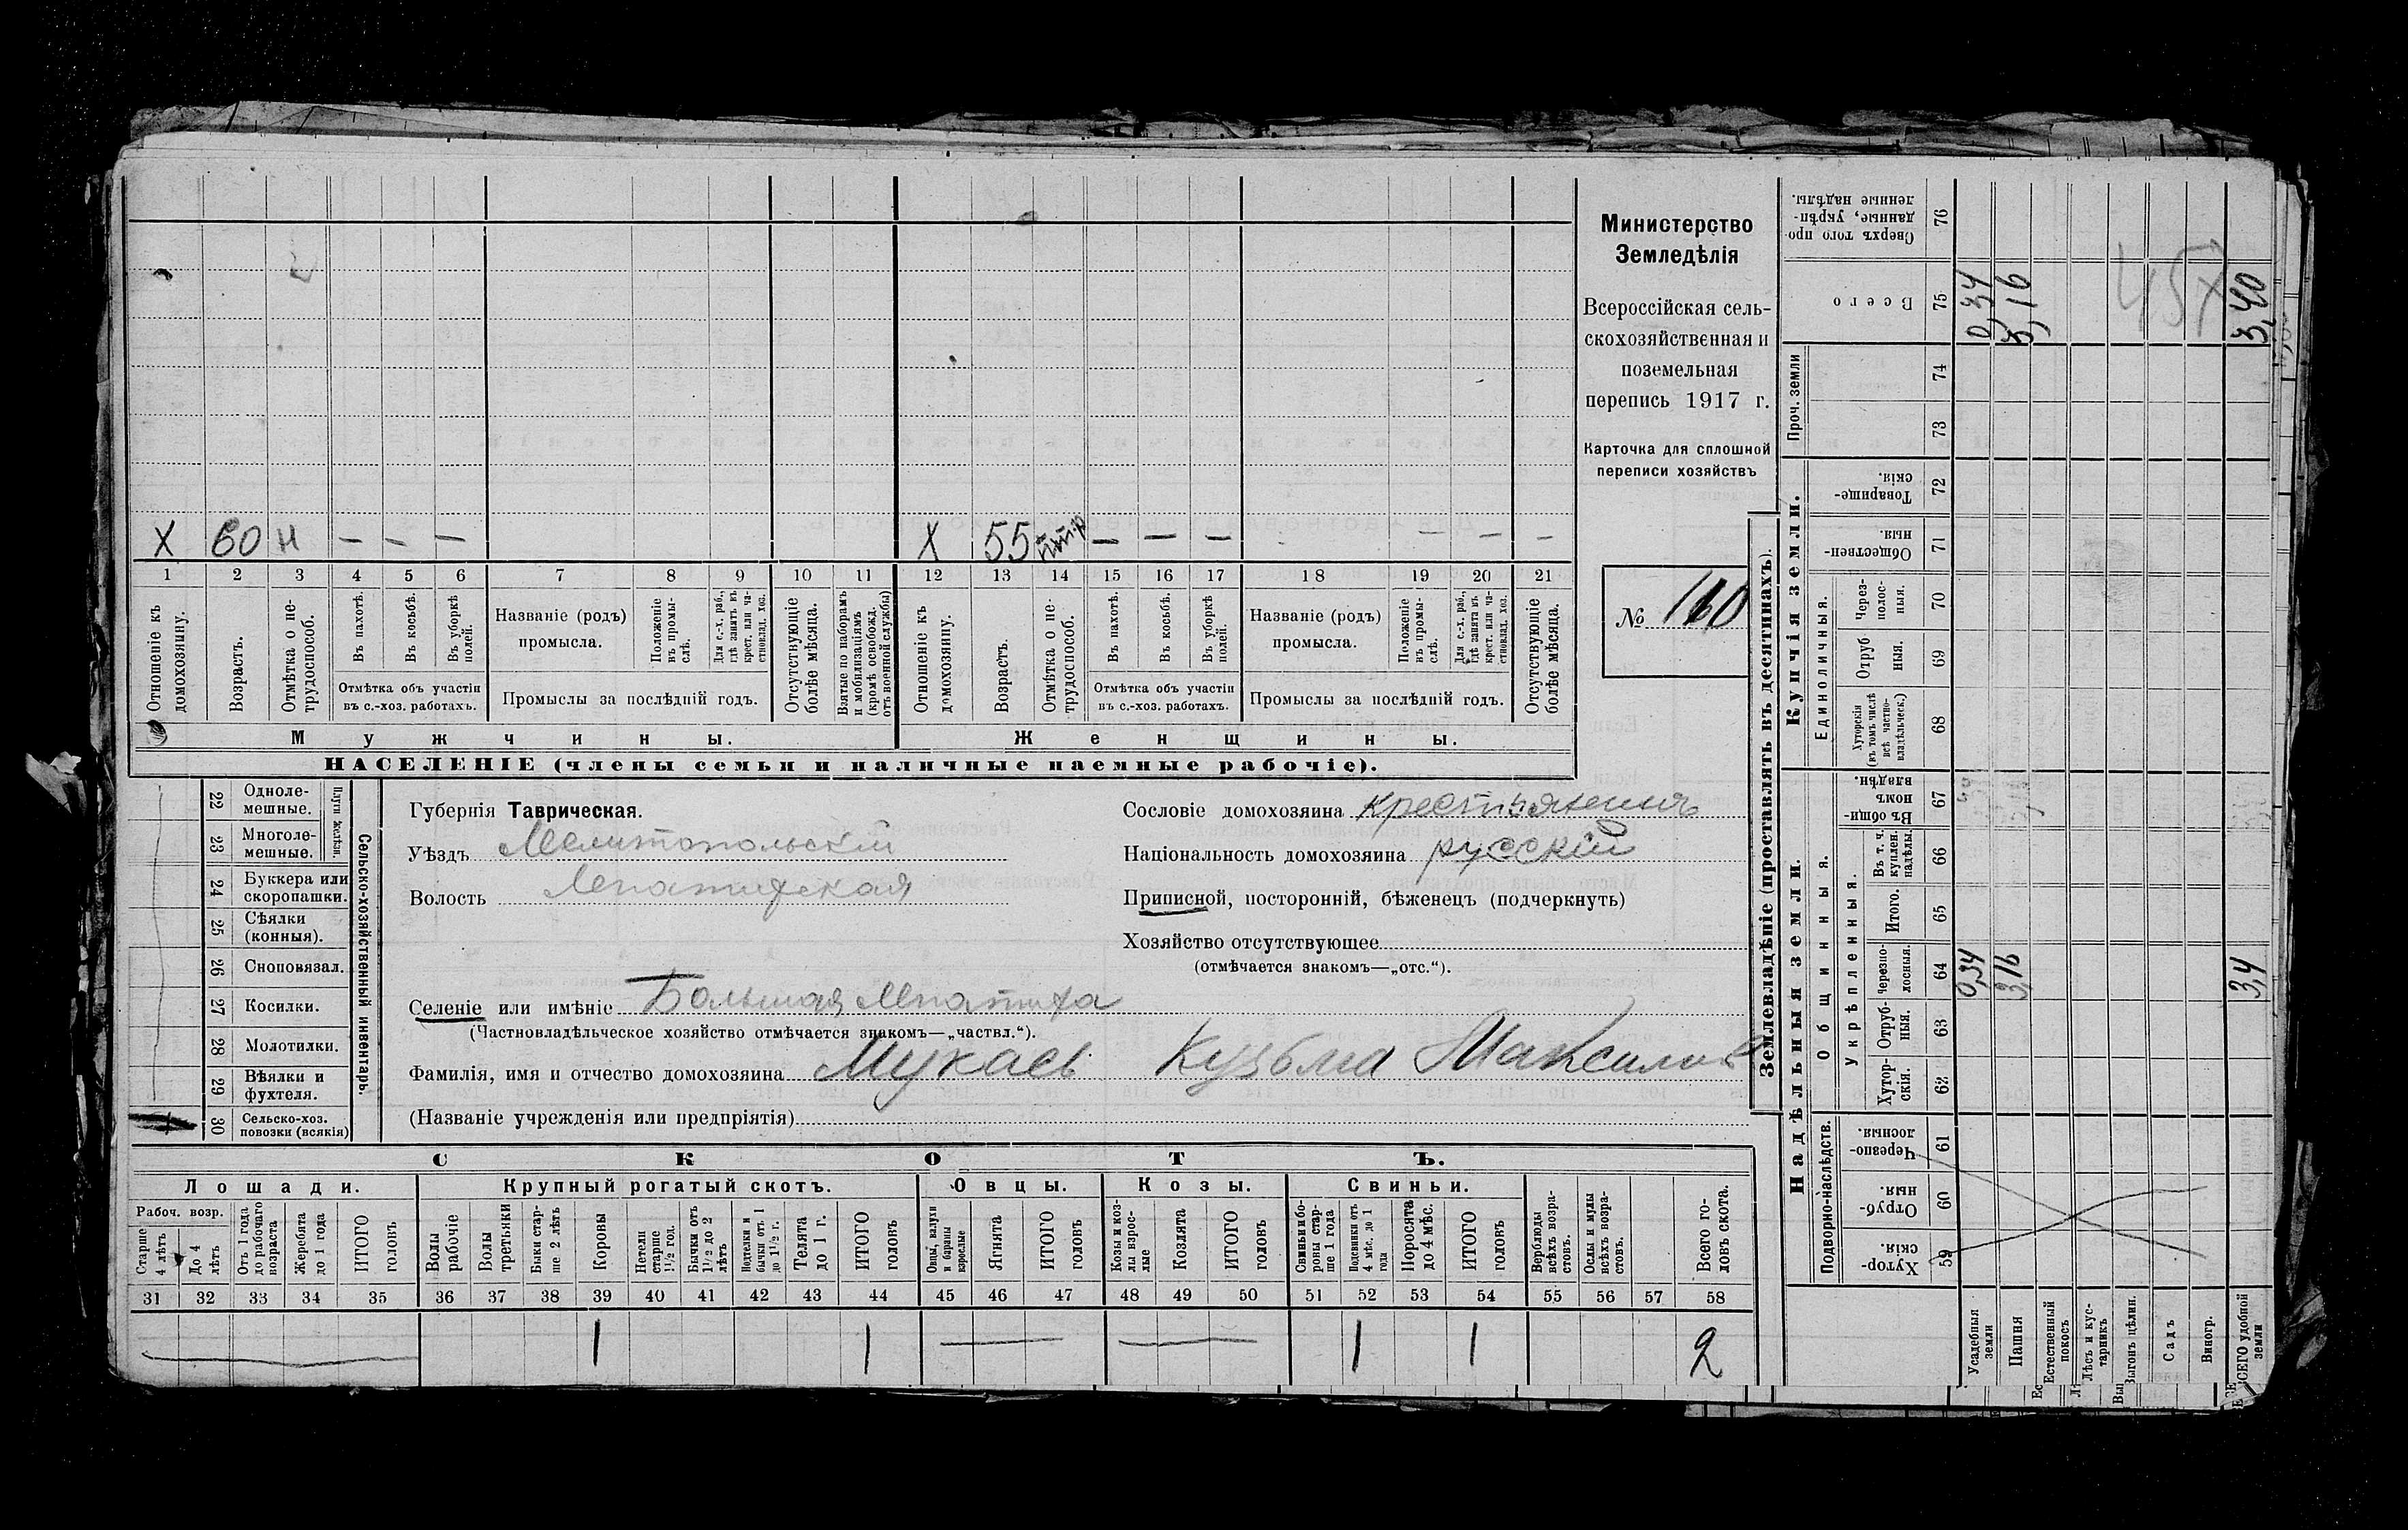 Министерство
Земледѣлія
Всероссійская сель-
скохозяйственная и
поземельная
перепись 1917 г.
Карточка для сплошной
переписи хозяйствъ
№ 160
X 60 н — — —
X 55 — — — — — —
1 2 3 4 5 6 7 8 9 10 11 12 13 14 15 16 17 18 19 20 21
Отношеніе къ домохозяину.
Возрастъ.
Отмѣтка о не-трудоспособ.
Въ пахотѣ.
Въ косьбѣ.
Въ уборкѣ полей.
Отмѣтка объ участіи
въ с.-хоз. работахъ.
Названіе (родъ)
промысла.
Положеніе въ промы-слѣ.
Для с.-х. раб., гдѣ занятъ въ крест. или ча-стновлад. хоз.
Промыслы за послѣдній годъ.
Отсутствующіе болѣе мѣсяца.
Взятые по наборамъ и мобилизаціямъ (кромѣ освобожд. отъ военной службы)
Отношеніе къ домохозяину.
Возрастъ.
Отмѣтка о не-трудоспособ.
Въ пахотѣ.
Въ косьбѣ.
Въ уборкѣ полей.
Отмѣтка объ участіи
въ с.-хоз. работахъ.
Названіе (родъ)
промысла.
Положеніе въ промы-слѣ.
Для с.-х. раб., гдѣ занята въ крест. или ча-стновлад. хоз.
Промыслы за послѣдній годъ.
Отсутствующіе болѣе мѣсяца.
Мужчины.
Женщины.
НАСЕЛЕНІЕ (члены семьи и наличные наемные рабочіе).
22 Одноле-мешные.
23 Многоле-мешные.
Плуги желѣзн.
24 Буккера или скоропашки.
25 Сѣялки (конныя).
26 Сноповязал.
27 Косилки.
28 Молотилки.
29 Вѣялки и фухтеля.
30 Сельско-хоз. повозки (всякія)
Сельско-хозяйственный инвентарь.
Губернія Таврическая.
Уѣздъ Мелитопольскій
Волость Лепатихская
Селеніе или имѣніе Большая Лепатиха
(Частновладѣльческое хозяйство отмѣчается знакомъ—„частвл.“).
Фамилія, имя и отчество домохозяина Мукаев Кузьма Максимов
(Названіе учрежденія или предпріятія)
Сословіе домохозяина крестьянинъ
Національность домохозяина русскій
Приписной, посторонній, бѣженецъ (подчеркнуть)
Хозяйство отсутствующее
(отмѣчается знакомъ—„отс.“).
СКОТЪ.
Лошади.
Крупный рогатый скотъ.
Овцы.
Козы.
Свиньи.
Рабоч. возр.
Старше 4 лѣтъ
До 4 лѣтъ
Отъ 1 года до рабочаго возраста
Жеребята до 1 года
ИТОГО головъ
Волы рабочіе
Волы третьяки
Быки стар-ше 2 лѣтъ
Коровы
Нетели старше 1½ год.
Бычки отъ 1½ до 2 лѣтъ
Подтелки и бычки отъ 1 до 1½ г.
Телята до 1 г.
ИТОГО головъ
Овцы, валухи и бараны взрослые
Ягнята
ИТОГО головъ
Козы и коз-лы взрос-лые
Козлята
ИТОГО головъ
Свиньи и бо-ровы стар-ше 1 года
Подсвинки отъ 4 мѣс. до 1 года
Поросята до 4 мѣс.
ИТОГО головъ
Верблюды всѣхъ возра-стовъ.
Ослы и мулы всѣхъ возра-стовъ.
Всего го-ловъ скота.
31 32 33 34 35 36 37 38 39 40 41 42 43 44 45 46 47 48 49 50 51 52 53 54 55 56 57 58
1 1 — — 1 1 2
Землевладѣніе (проставлять въ десятинахъ).
Надѣльныя земли.
Купчія земли.
Проч. земли
Подворно-наслѣдств.
Общинныя.
Укрѣпленныя.
Единоличныя.
Хутор-скія. 59
Отруб-ныя. 60
Черезпо-лосныя. 61
Хутор-скія. 62
Отруб-ныя. 63
Черезпо-лосныя. 64
Итого. 65
Въ т. ч. куплен. надѣлы. 66
Въ общи-номъ владѣн. 67
Хуторскія (въ томъ числѣ всѣ частно-владѣльческ.) 68
Отруб ныя. 69
Через-полос-ныя. 70
Обществен-ныя. 71
Товарище-скія. 72
73
74
Всего 75
Сверхъ того про-данные, укрѣп-ленные надѣлы. 76
Усадебныя земли 0,34 0,34
Пашня 3,16 3,16
Естественный покосъ
Лѣсъ и кус-тарникъ
Выгонъ цѣлин.
Садъ
Виногр.
ВСЕГО удобной земли 3,4 3,40